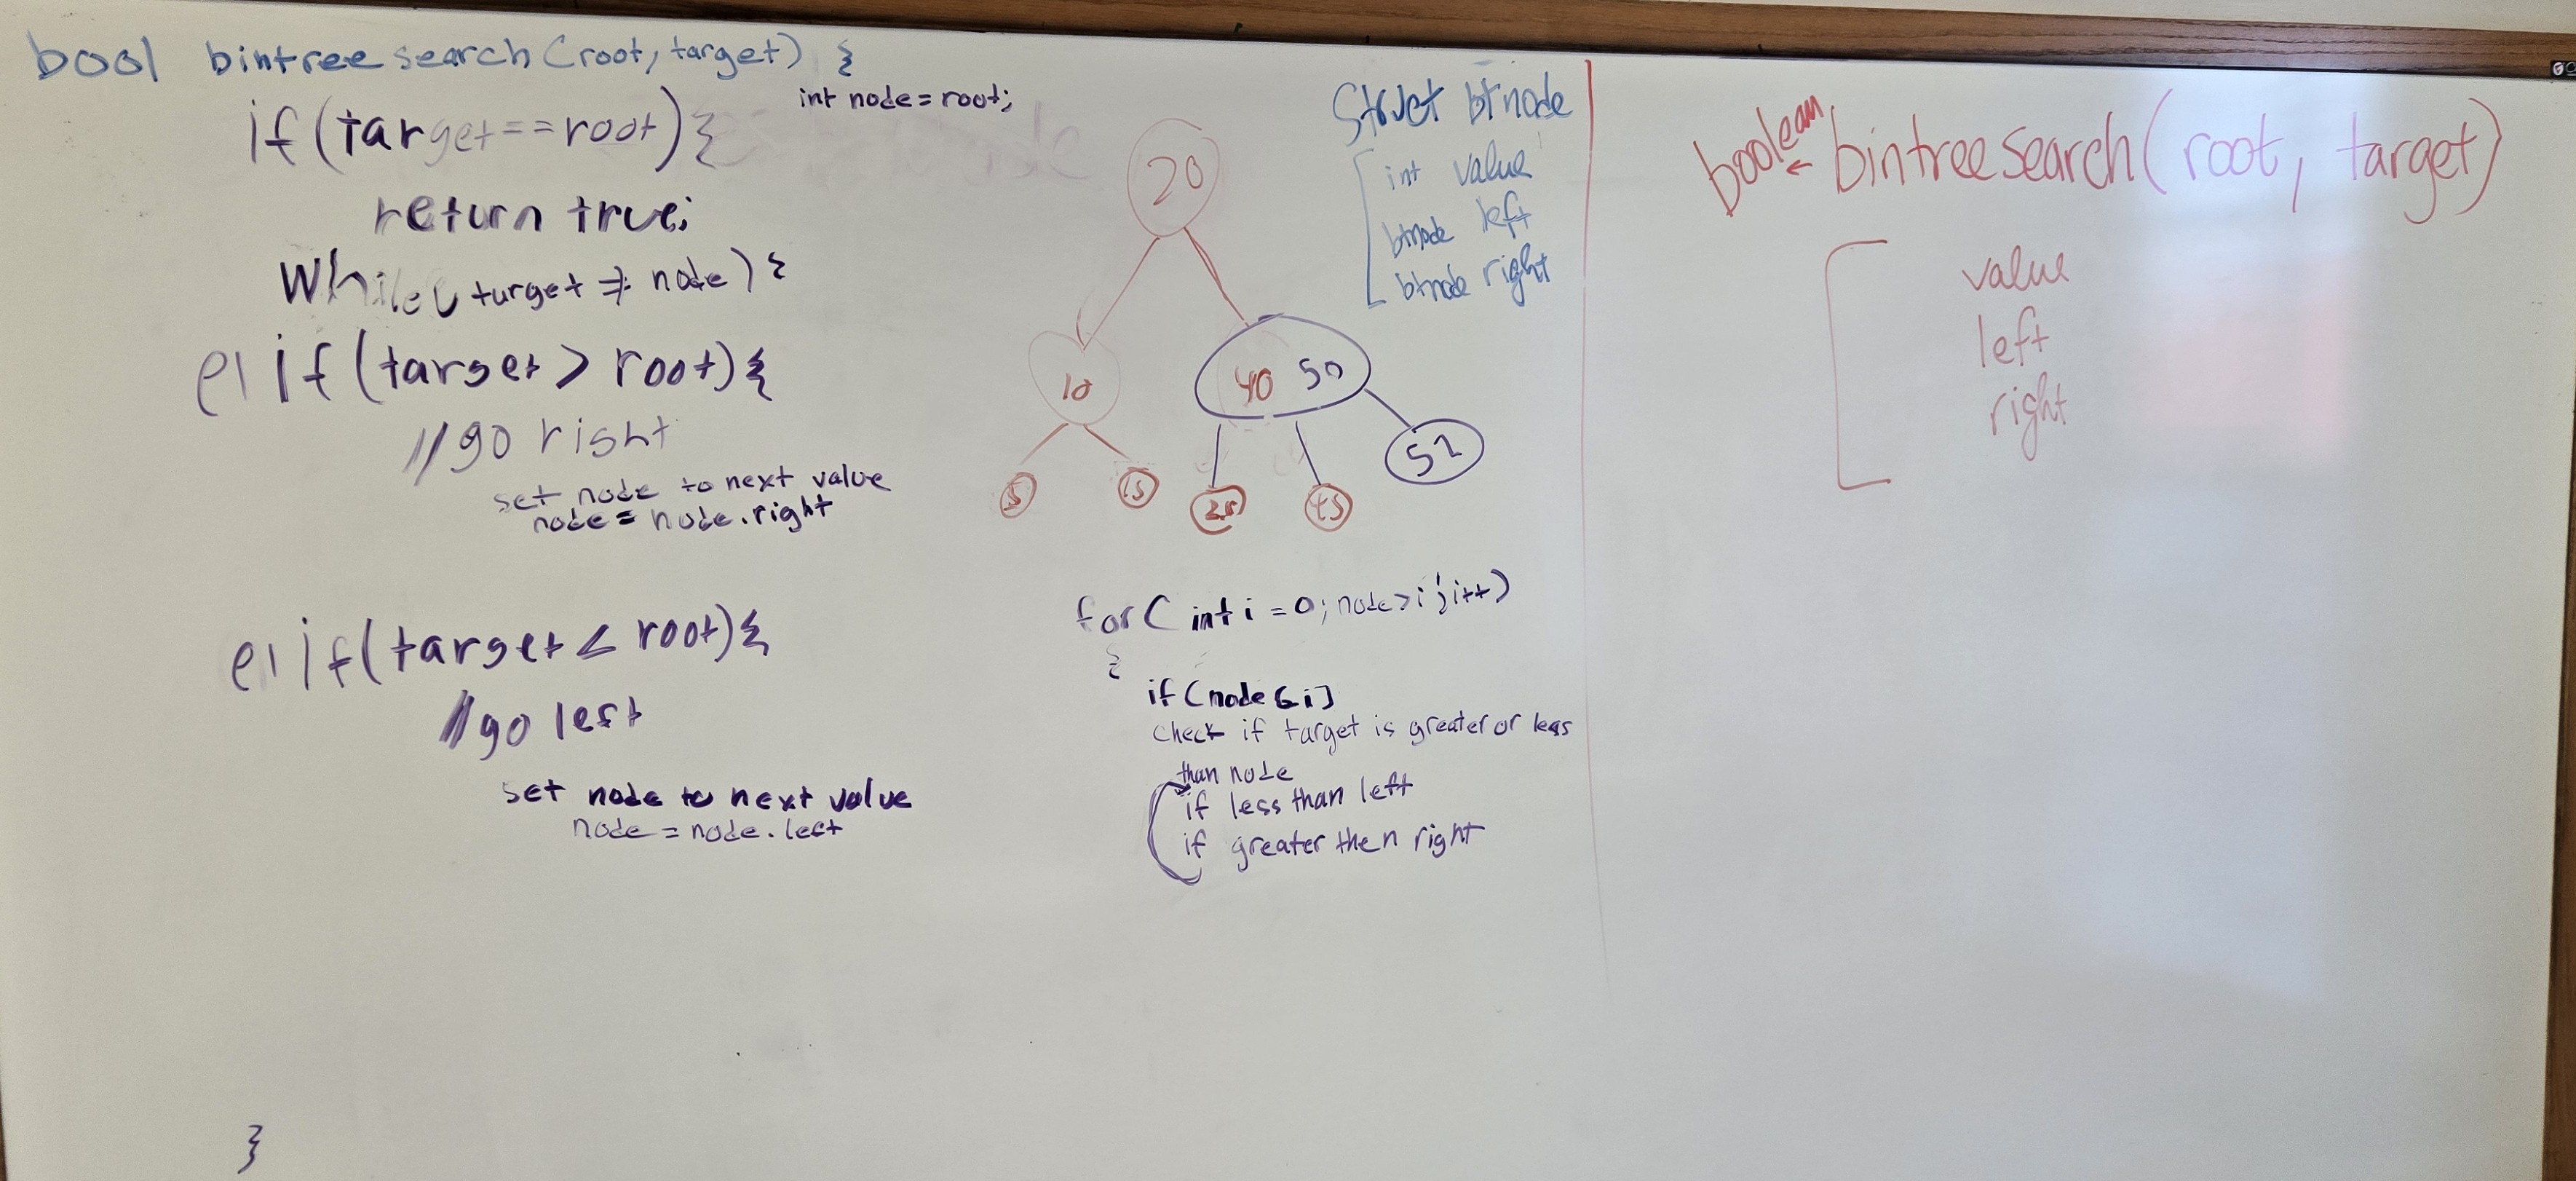 bool bintree search (root, target) {
int node = root;
if (target == root) {
return true;
while ( target ≠ node) {
el if (target > root) {
//go right
set node to next value
node = node.right
el if (target < root) {
//go left
set node to next value
node = node.left
}
20
10
40 50
5
15
45
52
Struct btnode
int value
btnode left
btnode right
for ( int i = 0; node > i; i++)
{
if (node [i]
check if target is greater or less
than node
if less than left
if greater then right
boolean ← bintree search (root, target)
value
left
right